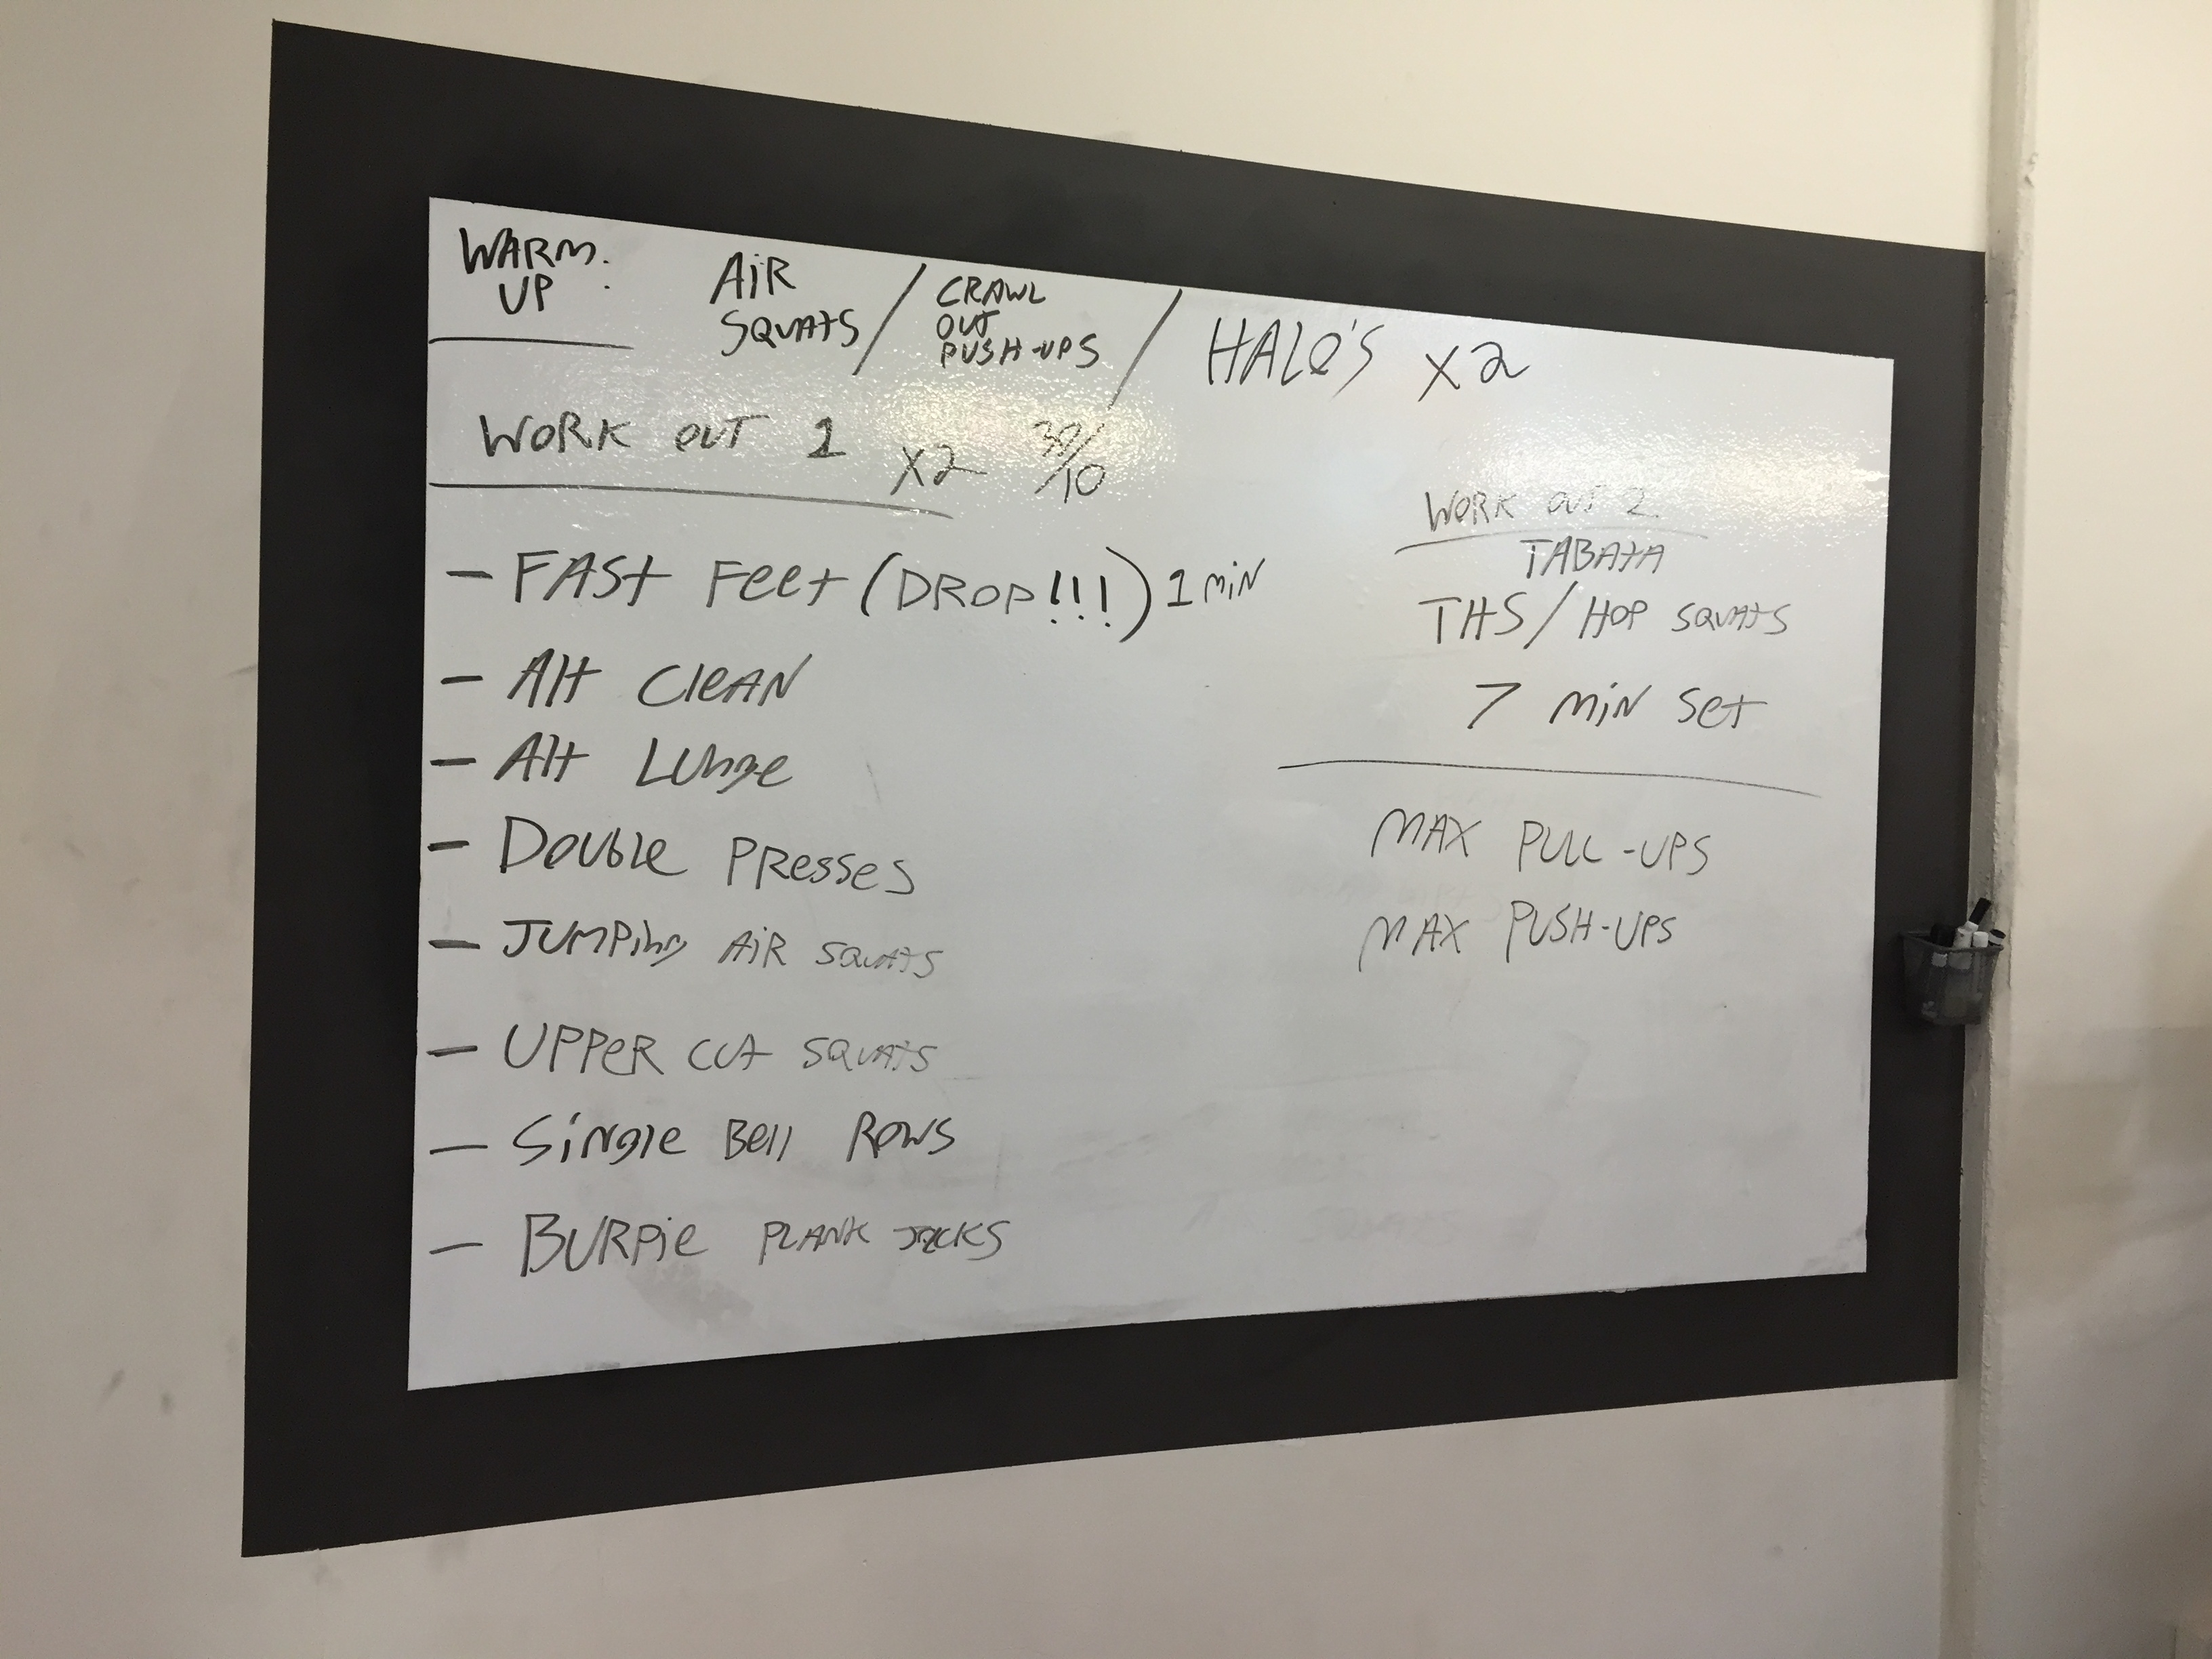 WARM UP:
AiR SQUATS / CRAWL OUT PUSH-UPS / HALO'S x2
WORK OUT 1 x2 30/10
- FAST FeeT (DROP!!!) 1 MiN
- Alt CleAN
- Alt LUnge
- DOUble PResses
- JUMPing AiR SQUATS
- UPPeR CUT SQUATS
- SiNgle Bell ROWS
- BURPie PLANK JACKS
WORK OUT 2
TABATA
THS / HOP SQUATS
7 MiN SeT
MAX PULL-UPS
MAX PUSH-UPS